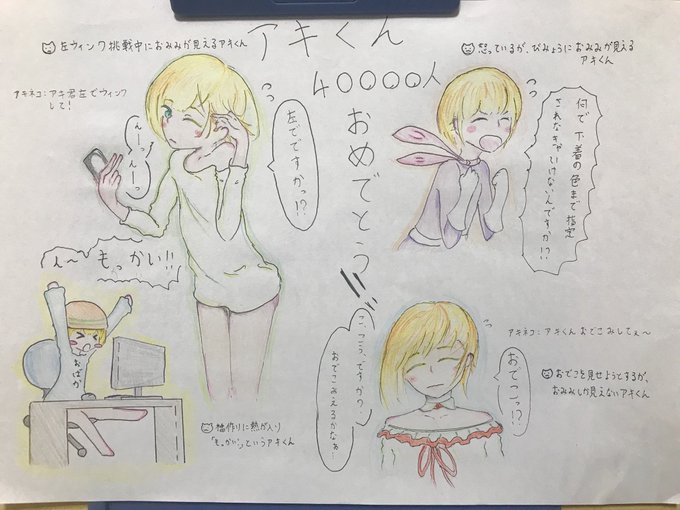 アキくん
40000人
おめでとう!!
左ウィンク挑戦中におみみが見えるアキくん
アキネコ:アキ君左でウィンク
して!
んーっんーっ
左でですかっ!?
怒っているが、びみょうにおみみが見える
アキくん
何で下着の色まで指定
されなきゃいけないんですか!?
ん~もっかい!!
おばか
橋作りに熱が入り
「もっかい」というアキくん
アキネコ:アキくんおでこみしてぇ~
おでこっ!?
こ、こう、ですか?
おでこみえるかなぁ…
おでこを見せようとするが、
おみみしか見えないアキくん